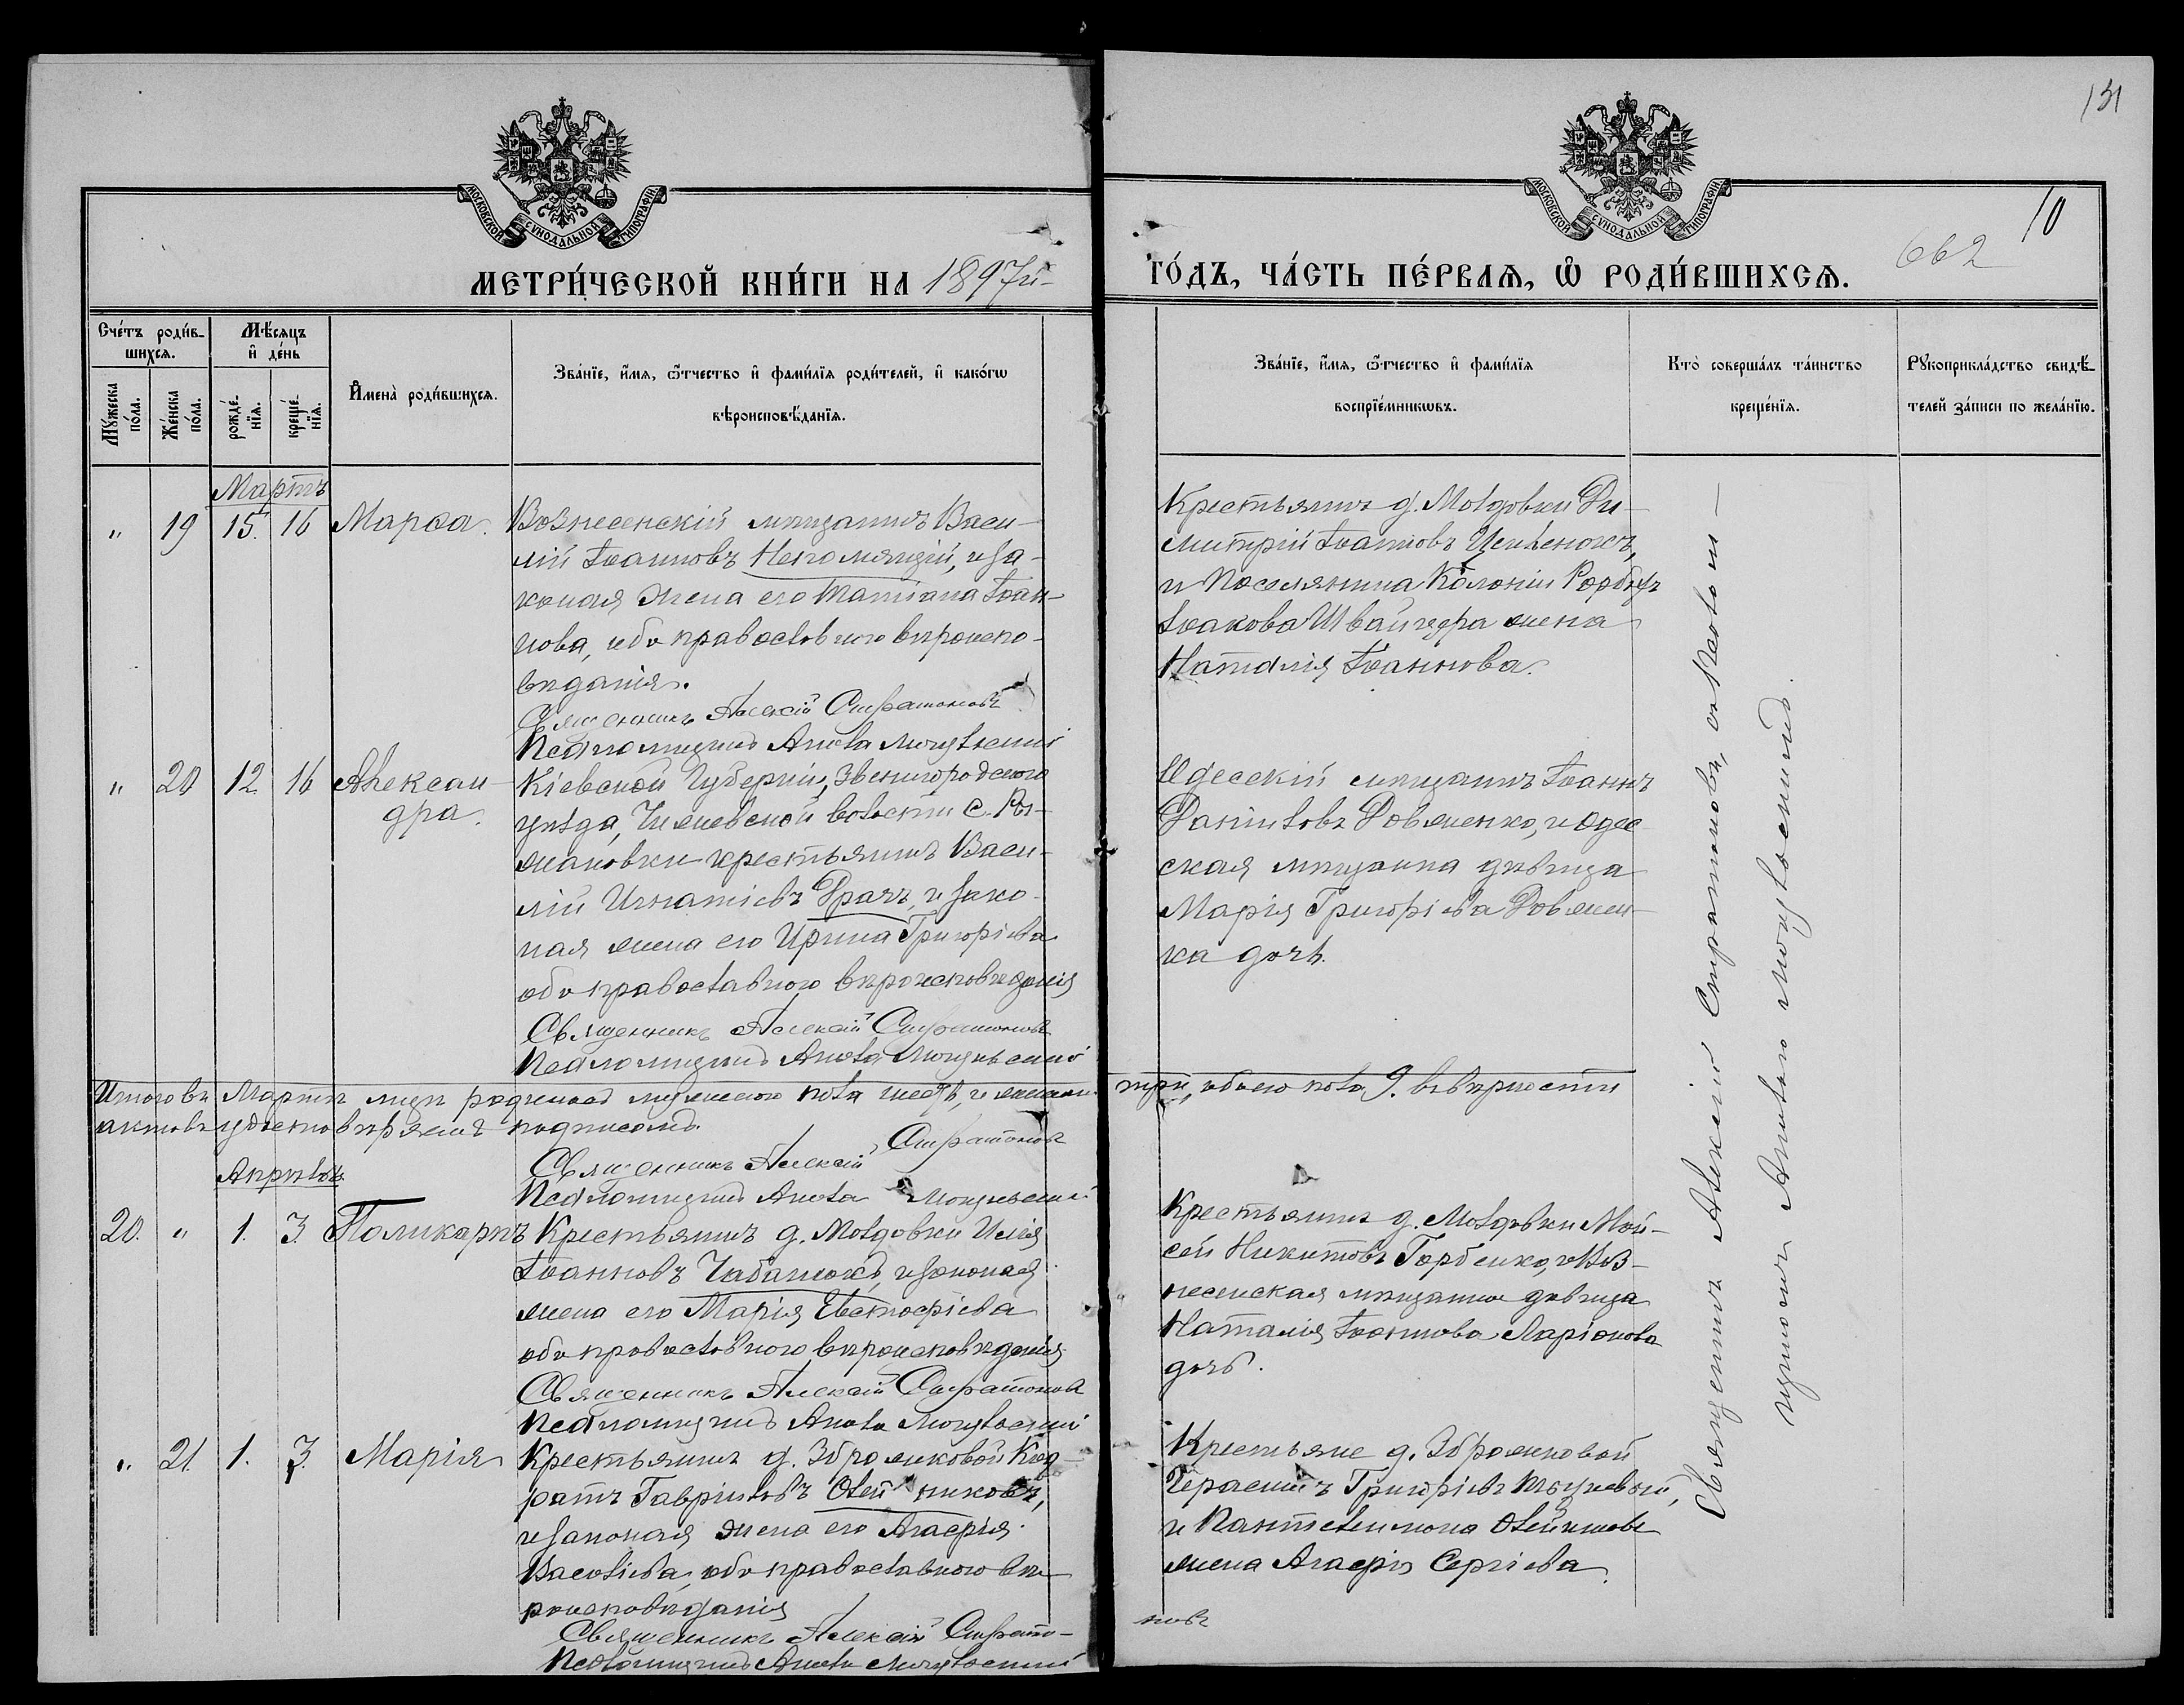 131
10
662
МОСКОВСКОЙ СѴНОДАЛЬНОЙ ТИПОГРАФІИ
МОСКОВСКОЙ СѴНОДАЛЬНОЙ ТИПОГРАФІИ
МЕТРИ́ЧЕСКОЙ КНИ́ГИ НА 1897й
ГО́ДЪ, ЧА́СТЬ ПЕ́РВАѦ, Ѡ РОДИ́ВШИХСѦ.
Счётъ роди́в-
шихсѧ.
Мѣ́сяцъ
и҆ де́нь
Мꙋ́жеска по́ла.
Же́нска по́ла.
рожде́-нїѧ.
креще́-нїѧ.
И҆мена̀ роди́вшихсѧ.
Зва́нїе, и҆́мѧ, ѻ҆́тчество и҆ фами́лїѧ роди́телей, и҆ како́гѡ
вѣроисповѣ́данїѧ.
Зва́нїе, и҆́мѧ, ѻ҆́тчество и҆ фами́лїѧ
воспрїе́мникѡвъ.
Кто̀ соверша́лъ та́инство
креще́нїѧ.
Рꙋкоприкла́дство свидѣ́-
телей за́писи по жела́нїю.
Мартъ
" 19 15. 16 Марѳа.
Вознесенскій мѣщанинъ Васи-
лій Іоанновъ Непомящій, и за-
коная жена его Татіана Іоан-
нова, обо православного вѣроиспо-
вѣданія.
Священникъ Алексій Стратоновъ
Псаломщикъ Аполл
Крестьянинъ д. Молдовки Ди-
митрій Іоанновъ
и Поселянина Колоніи Рорбахъ
Іоакова Швайгерта жена
Наталія Іоаннова.
" 20 12. 16 Александра.
Кіевской Губерніи, Звенигородского
уѣзда, волости с. Ры-
жановки крестьянинъ Васи-
лій Игнатіевъ Драчъ, и зако-
ная жена его Ирина Григоріева
обо православного вѣроисповѣданія
Священникъ Алексій Стратоновъ
Псаломщикъ
Одесскій мѣщанинъ Іоаннъ
Даніиловъ Довженко, и Одес-
ская мѣщанка дѣвица
Марія Григоріева Довжен-
ка дочь.
Итого въ Мартѣ мѣ родилось мужеского пола шесть, и женского три, обоего пола 9. въ вѣрности
актовъ удостовѣряемъ подписомъ.
Священникъ Алексій Стратоновъ
Псаломщикъ
Апрѣль
20. " 1. 3. Поликарпъ
Крестьянинъ д. Молдовки Илія
Іоанновъ Чабанюкъ, и законая
жена его Марія Евстафіева
обо православного вѣроисповѣданія
Священникъ Алексій Стратоновъ
Псаломщикъ
Крестьянинъ д. Молдовки Мой-
сей Никитовъ Горбенко, и Воз-
несенская мѣщанка дѣвица
Наталія Іоаннова Ларіонова
дочь.
" 21. 1. 3. Марія
Крестьянинъ д. Зброжковой Код-
ратъ Гавріиловъ Олейниковъ,
и законая жена его Агафія
Васоліева, обо православного вѣ-
роисповѣданія
Священникъ Алексій Страто-
новъ
Псаломщикъ
Крестьяне д. Зброжковой
Герасимъ Григоріевъ
и Пантелеимона Олейникова
жена Агафія Сергіева.
Священникъ Алексій Стратоновъ, съ Псалом-
щикомъ